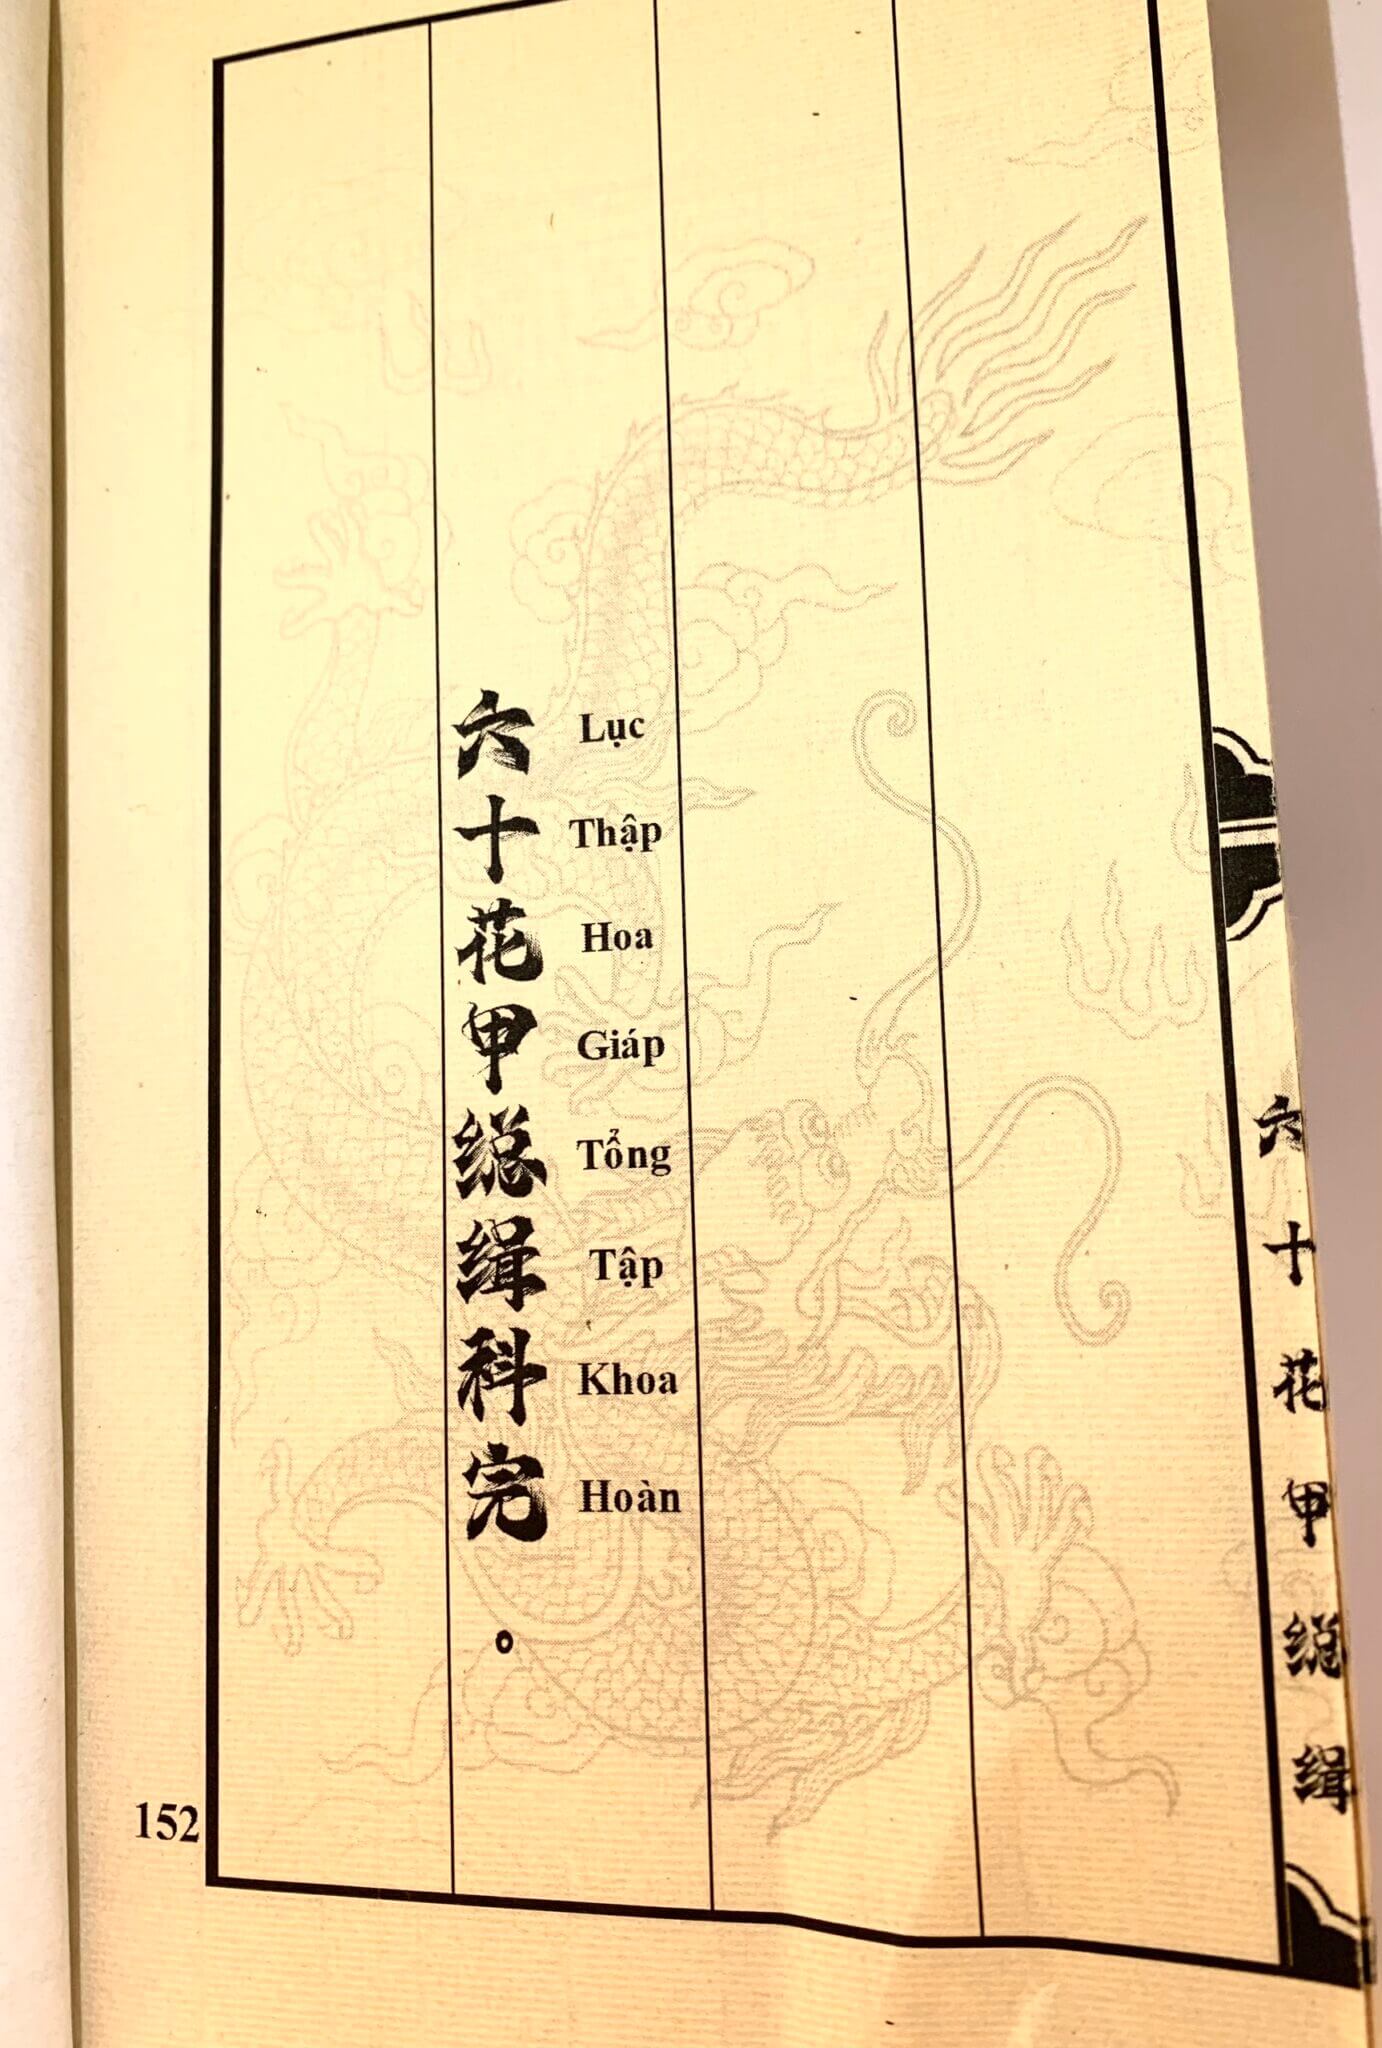 六十花甲緫緝科完。
Lục
Thập
Hoa
Giáp
Tổng
Tập
Khoa
Hoàn
六十花甲緫緝
152